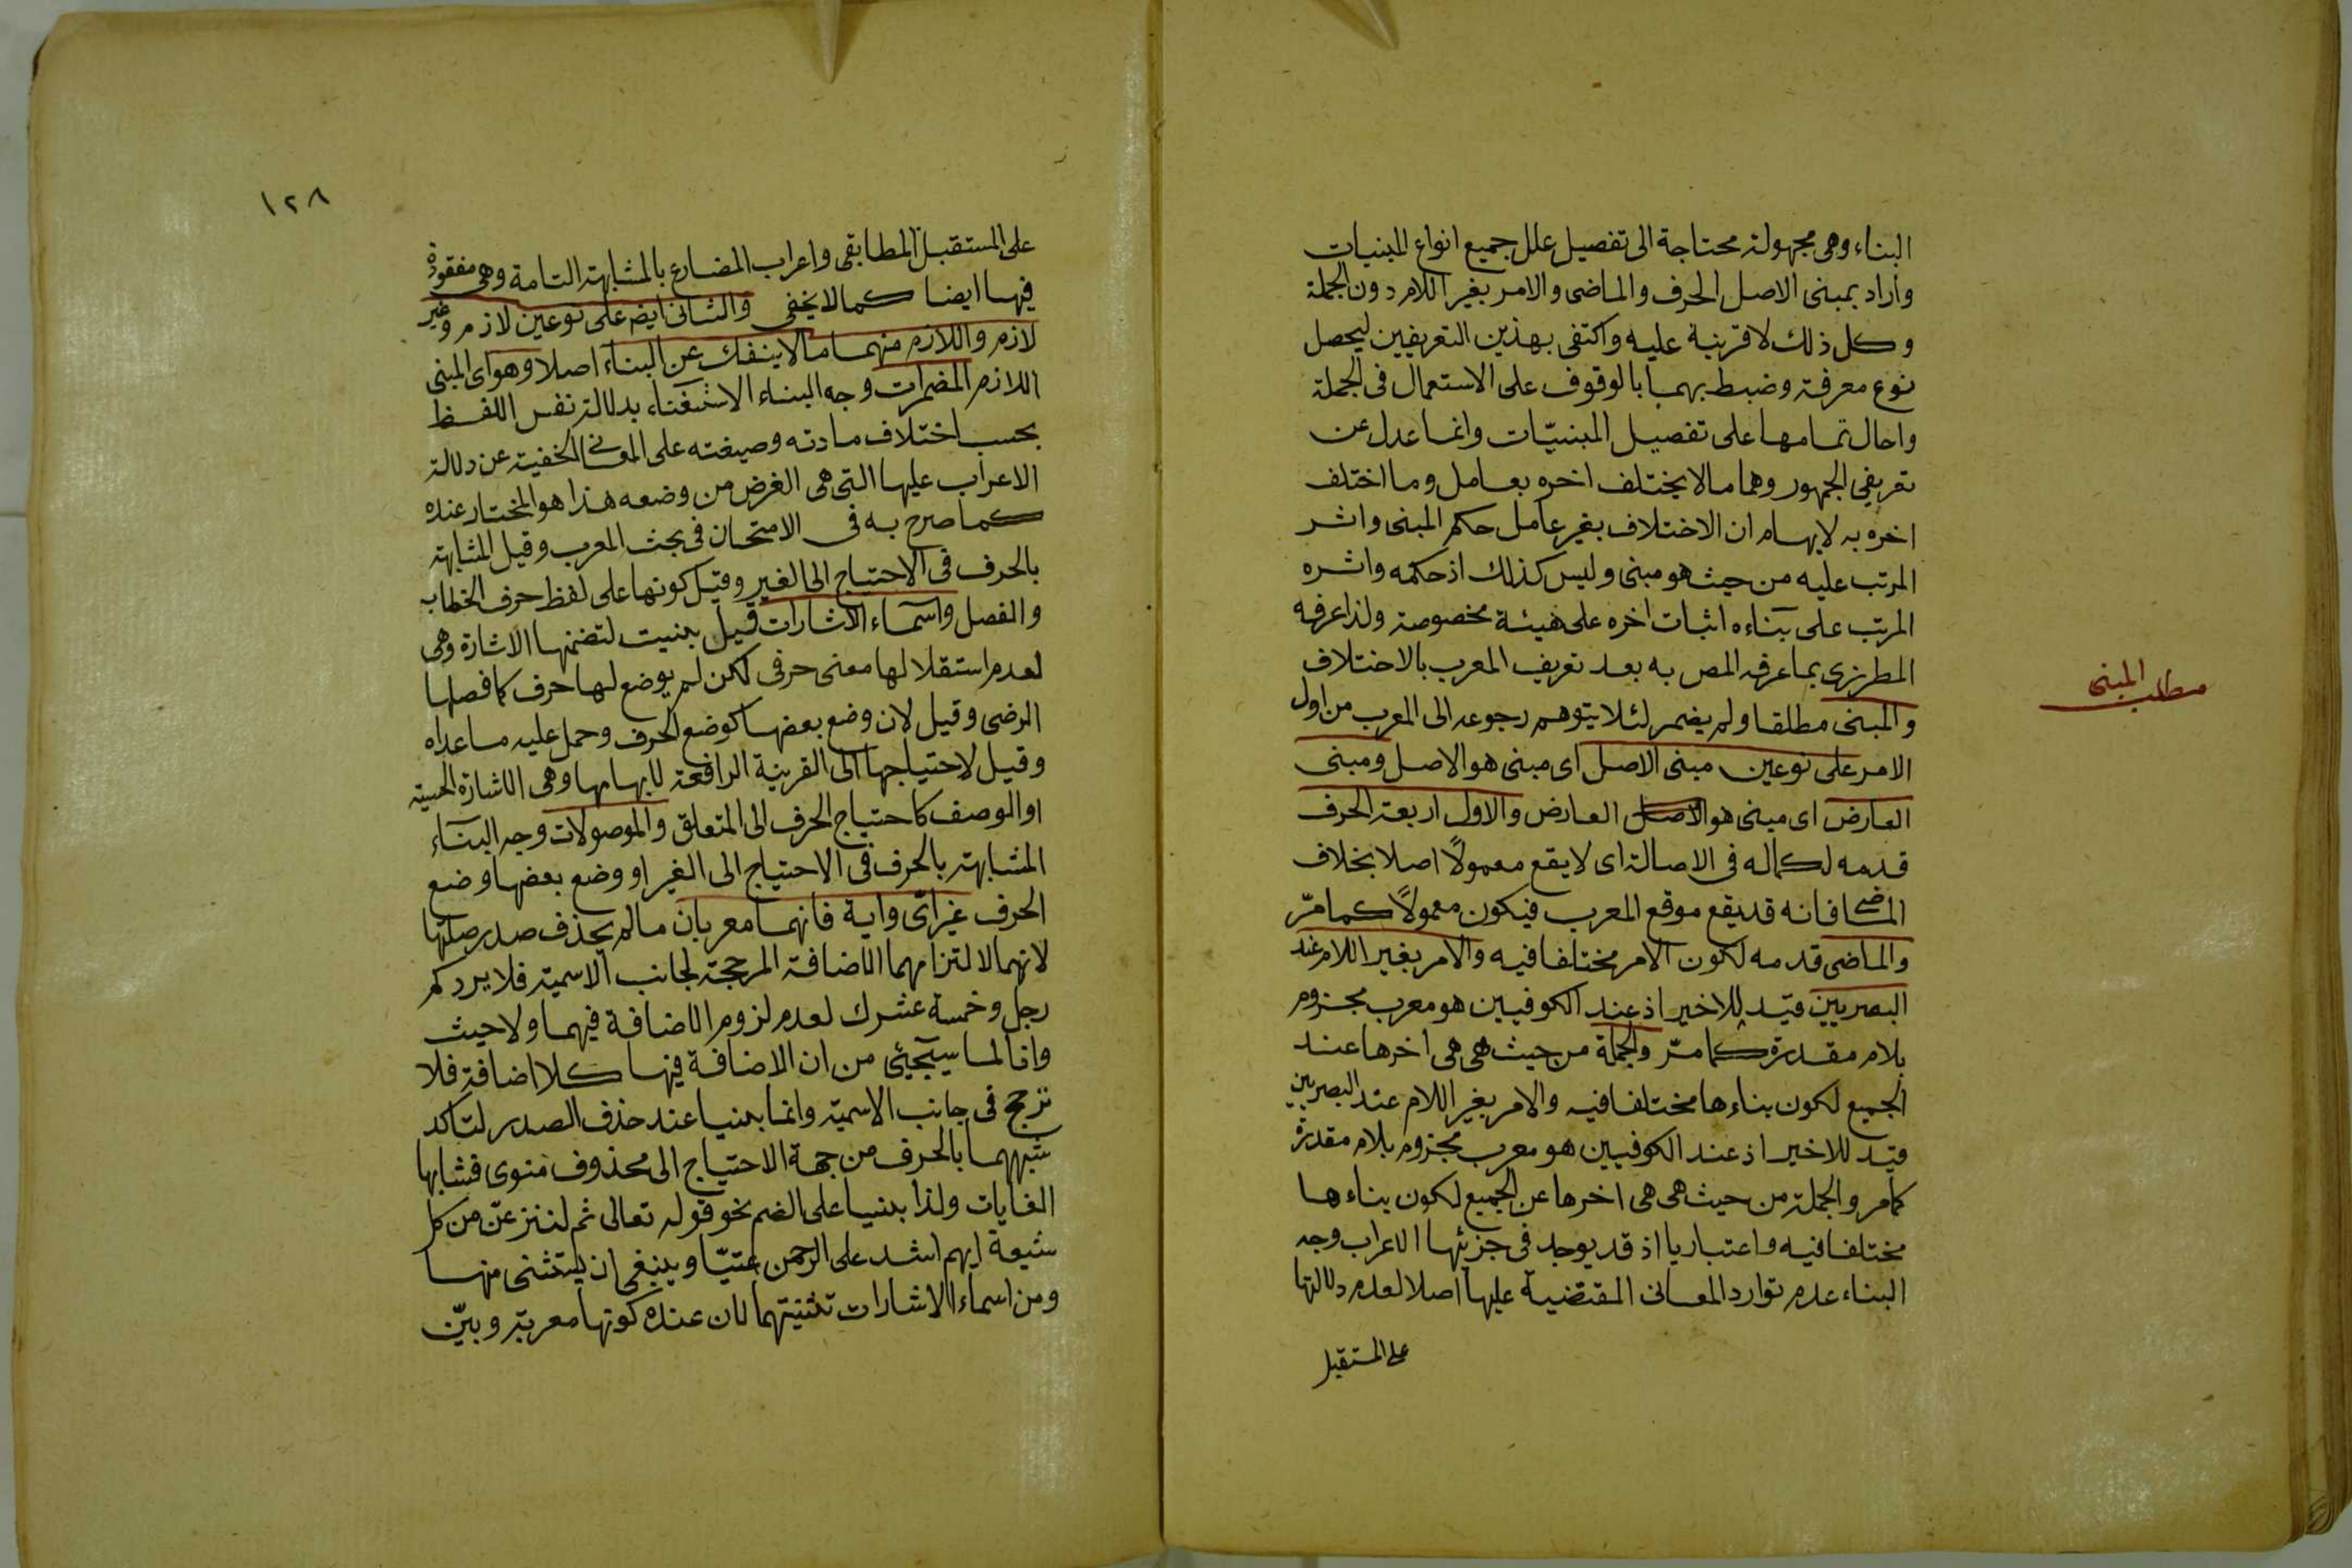 البناء وهى مجهولة محتاجة الى تفصيل علل جميع انواع المبنيات
واراد بمبنى الاصل الحرف والماضى والامر بغير اللام دون الجملة
وكل ذلك لا قرينة عليه واكتفى بهذين التعريفين ليحصل
نوع معرفة وضبط بهما بالوقوف على الاستعمال فى الجملة
واحال تمامها على تفصيل المبنيّات وانما عدل عن
تعريفى الجمهور وهما مالا يختلف اخره بعامل وما اختلف
اخره به لايهام ان الاختلاف بغير عامل حكم المبنى واثر
المرتب عليه من حيث هو مبنى وليس كذلك اذ حكمه واثره
المرتب على بناءه اثبات اخره على هيئة مخصوصة ولذا عرفه
المطرزى بما عرفه المص به بعد تعريف المعرب بالاختلاف
مطلب المبنى
والمبنى مطلقا ولم يضمر لئلا يتوهم رجوعه الى المعرب من اول
الامر على نوعين مبنى الاصل اى مبنى هو الاصل ومبنى
العارض اى مبنى هو الاصل العارض والاول اربعة الحرف
قدمه لكماله فى الاصالة اى لا يقع معمولًا اصلا بخلاف
الماضى فانه قد يقع موقع المعرب فيكون معمولًا كما مرّ
والماضى قدمه لكون الامر مختلفا فيه والامر بغير اللام عند
البصريين قيد للاخير اذ عند الكوفيين هو معرب مجزوم
بلام مقدرة كما مرّ والجملة من حيث هى هى اخرها عند
الجميع لكون بناءها مختلفا فيه والامر بغير اللام عند البصريين
قيد للاخير اذ عند الكوفيين هو معرب مجزوم بلام مقدرة
كما مر والجملة من حيث هى هى اخرها عن الجميع لكون بناءها
مختلفا فيه واعتباريا اذ قد يوجد فى جزئها الاعراب وجه
البناء عدم توارد المعانى المقتضية عليها اصلا لعدم دلالتها
على المستقبل
١٢٨
على المستقبل المطابقى واعراب المضارع بالمشابهة التامة وهى مفقودة
فيها ايضا كما لا يخفى والثانى ايضا على نوعين لازم وغير
لازم واللازم منهما مالا ينفك عن البناء اصلا وهو اى المبنى
اللازم المضمرات وجه البناء الاستغناء بدلالة نفس اللفظ
بحسب اختلاف مادته وصيغته على المعانى الخفية عن دلالة
الاعراب عليها التى هى الغرض من وضعه هذا هو المختار عنده
كما صرح به فى الامتحان فى بحث المعرب وقيل المشابهة
بالحرف فى الاحتياج الى الغير وقيل كونها على لفظ حرف الخطاب
والفصل واسماء الاشارات قيل بنيت لتضمنها الاشارة وهى
لعدم استقلالها معنى حرفى لكن لم يوضع لها حرف كما فصلها
الرضى وقيل لان وضع بعضها كوضع الحرف وحمل عليه ما عداه
وقيل لاحتياجها الى القرينة الرافعة لابهامها وهى الاشارة الحسية
او الوصف كاحتياج الحرف الى المتعلق والموصولات وجه البناء
المشابهة بالحرف فى الاحتياج الى الغير او وضع بعضها وضع
الحرف غير اىّ واية فانهما معربان مالم يحذف صدر صلتها
لانهما لالتزامهما الاضافة المرجحة لجانب الاسمية فلا يرد كم
رجل وخمسة عشرك لعدم لزوم الاضافة فيهما ولا حيث
واذا لما سيجيئ من ان الاضافة فيها كلا اضافة فلا
ترجح فى جانب الاسمية وانما بنيا عند حذف الصدر لتاكد
شبههما بالحرف من جهة الاحتياج الى محذوف منوى فشابها
الغايات ولذا بنيا على الضم نحو قوله تعالى ثم لننزعنّ من كل
شيعة ايهم اشد على الرحمن عتيّا وينبغى ان يستثنى منها
ومن اسماء الاشارات تثنيتهما لان عنده كونها معربة وبيّن